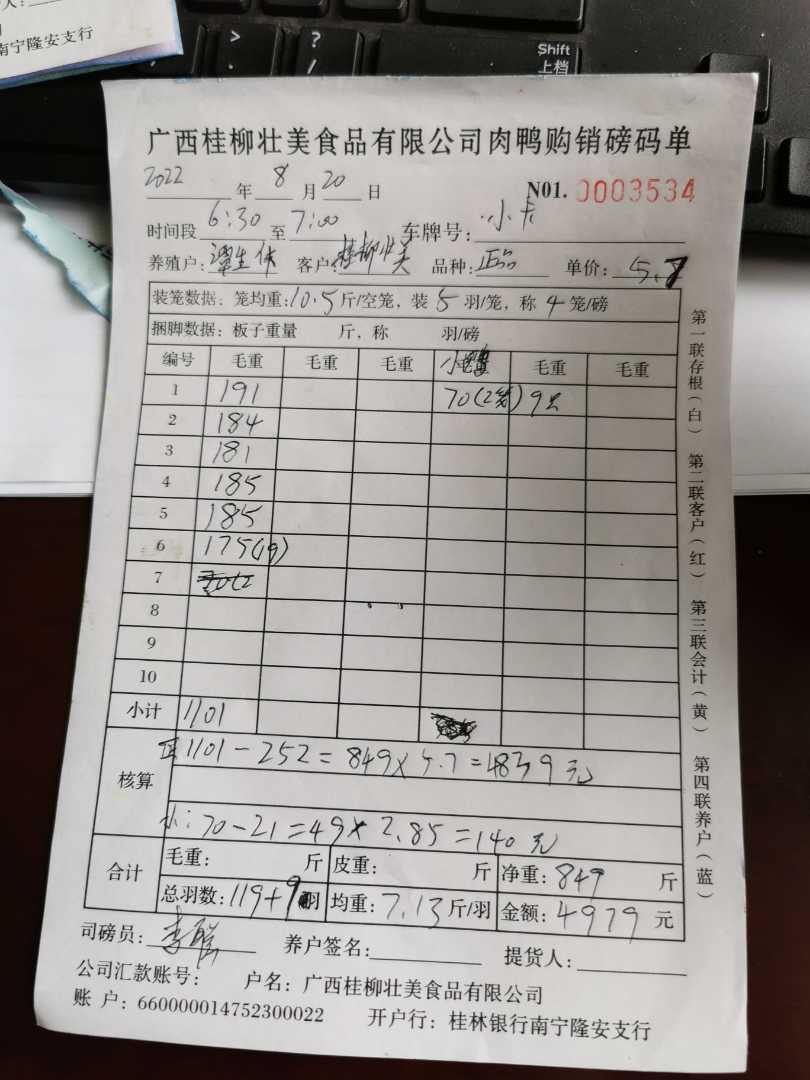 南宁隆安支行
Shift
上档
广西桂柳壮美食品有限公司肉鸭购销磅码单
2022年8月20日 N01.0003534
时间段6:30至7:00 车牌号:小卡
养殖户: 客户:桂柳壮美 品种:正品 单价:5.7
装笼数据:笼均重:10.5斤/空笼,装5羽/笼,称4笼/磅
捆脚数据:板子重量 斤,称 羽/磅
编号 毛重 毛重 毛重 小 毛重 毛重
1 191 70(2笼)9只
2 184
3 181
4 185
5 185
6 175(19)
7
8
9
10
小计 1101
核算 正1101-252=849×5.7=4839元
小:70-21=49×2.85=140元
合计 毛重: 斤 皮重: 斤 净重:849斤
总羽数:119+9羽 均重:7.13斤/羽 金额:4979元
司磅员: 养户签名: 提货人:
公司汇款账号: 户名:广西桂柳壮美食品有限公司
账 户:660000014752300022 开户行:桂林银行南宁隆安支行
第一联存根(白) 第二联客户(红) 第三联会计(黄) 第四联养户(蓝)